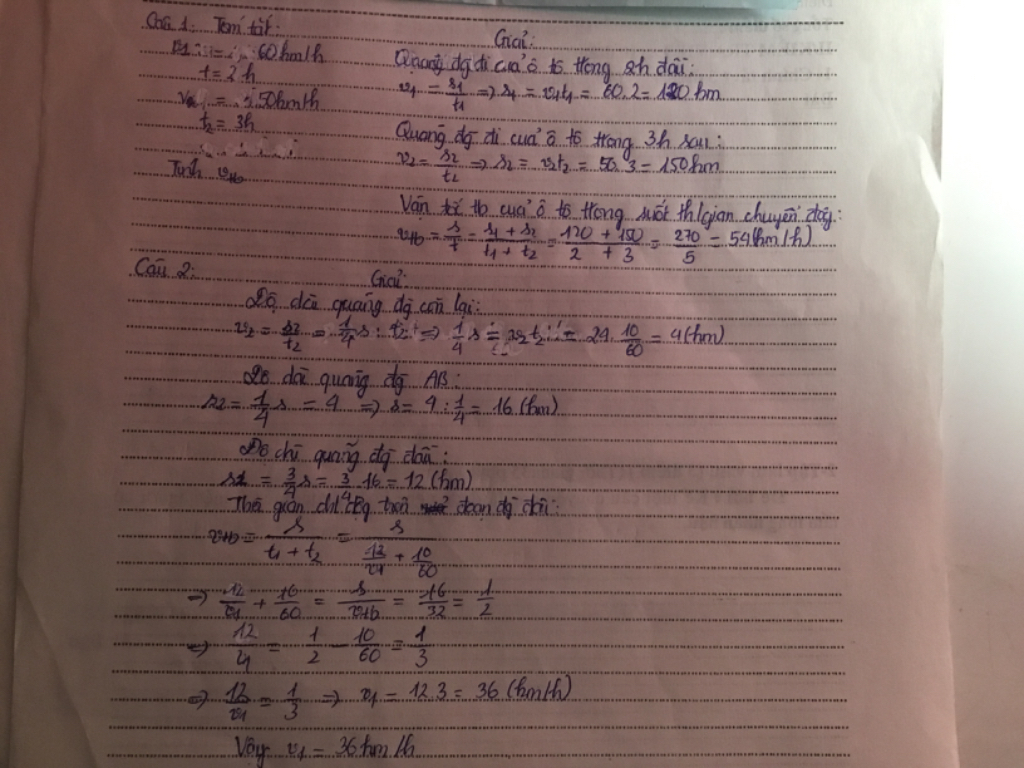 Câu 1: Tóm tắt:
Giải:
v1 = 60km/h
t = 2h
= 50km/h
t2 = 3h
Tính vtb
Quãng đg đi của ô tô trong 2h đầu:
v1 = s1/t1 => s1 = v1t1 = 60.2 = 120 km
Quãng đg đi của ô tô trong 3h sau:
v2 = s2/t2 => s2 = v2t2 = 50.3 = 150km
Vận tốc tb của ô tô trong suốt th/gian chuyển độg:
vtb = s/t = s1 + s2/t1 + t2 = 120 + 150/2 + 3 = 270/5 = 54(km/h)
Câu 2:
Giải:
Độ dài quãng đg còn lại:
v2 = s2/t2 = 1/4 s : t2 => 1/4 s = v2t2 = 24. 10/60 = 4(km)
Độ dài quãng đg AB:
s2 = 1/4 s = 4 => s = 4 : 1/4 = 16 (km)
Độ quãng đg đầu:
s1 = 3/4 s = 3/4 16 = 12 (km)
Thời gian đoạn đg đầu:
vtb = s/t1 + t2 = s/12/v1 + 10/60
=> 12/v1 + 10/60 = s/vtb = 16/32 = 1/2
=> 12/v1 = 1/2 - 10/60 = 1/3
=> 12/v1 = 1/3 => v1 = 12.3 = 36 (km/h)
Vậy v1 = 36km/h